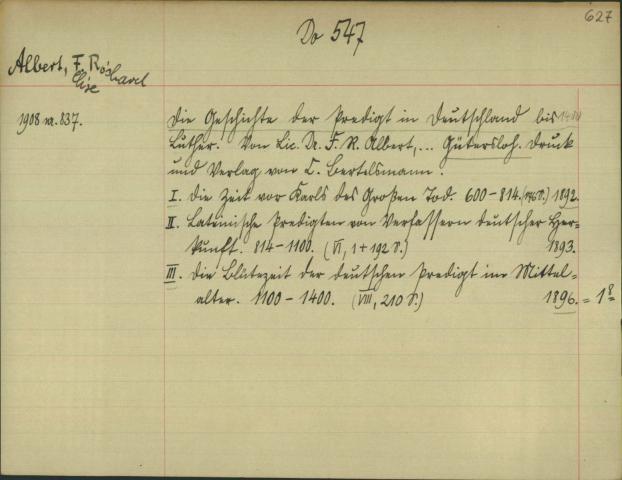 627
Do 547
Albert, F. Richard
1908 M. 837.
Die Geschichte der Predigt in Deutschland bis
Luther. Von Lic. Dr. F. R. Albert,... Gütersloh. Druck
und Verlag von C. Bertelsmann.
I. Die Zeit vor Karls des Großen Tod. 600-814. 1892.
II. Lateinische Predigten von Verfassern deutscher Her=
kunft. 814-1100. (VI, 1+192 S.) 1893.
III. Die Blütezeit der deutschen Predigt im Mittel=
alter. 1100-1400. (VIII, 210 S.) 1896. = 1 8=